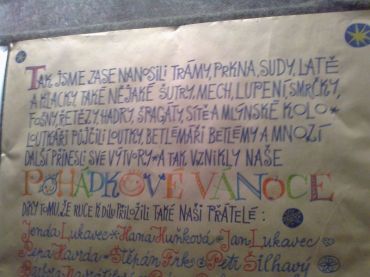 TAK JSME ZASE NANOSILI TRÁMY, PRKNA, SUDY, LATĚ
A KLACKY, TAKÉ NĚJAKÉ ŠUTRY, MECH, LUPENÍ SMRČKY,
FOŠNY ŘETĚZY, HADRY, ŠPAGÁTY, SÍTĚ A MLÝNSKÉ KOLO*
LOUTKÁŘI PŮJČILI LOUTKY, BETLÉMÁŘI BETLÉMY A MNOZÍ
DALŠÍ PŘINESLI SVÉ VÝTVORY * A TAK VZNIKLY NAŠE
POHÁDKOVÉ VÁNOCE
DÍKY TOMU, ŽE RUCE K DÍLU PŘILOŽILI TAKÉ NAŠI PŘÁTELÉ :
Jenda Lukavec * Hana Huňková * Jan Lukavec
Havrda * Štěpán * Petr Šilhavý